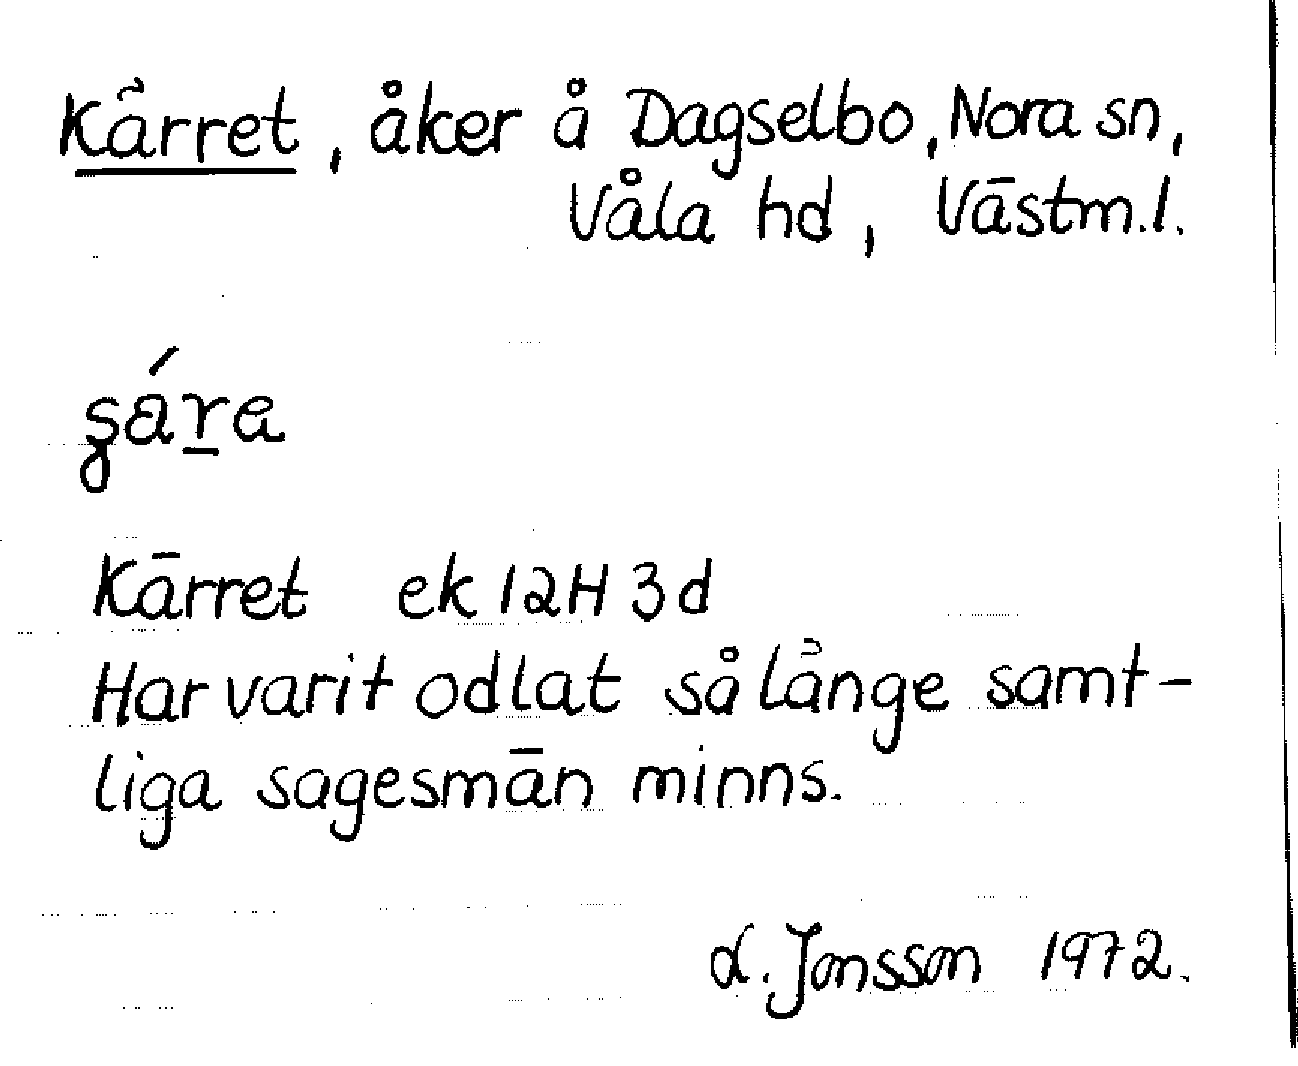 Kärret, åker å Dagselbo, Nora sn,
Våla hd, Västm.l.
Kärret ek 12H 3d
Har varit odlat så länge samt-
liga sagesmän minns.
L. Jonsson 1972.